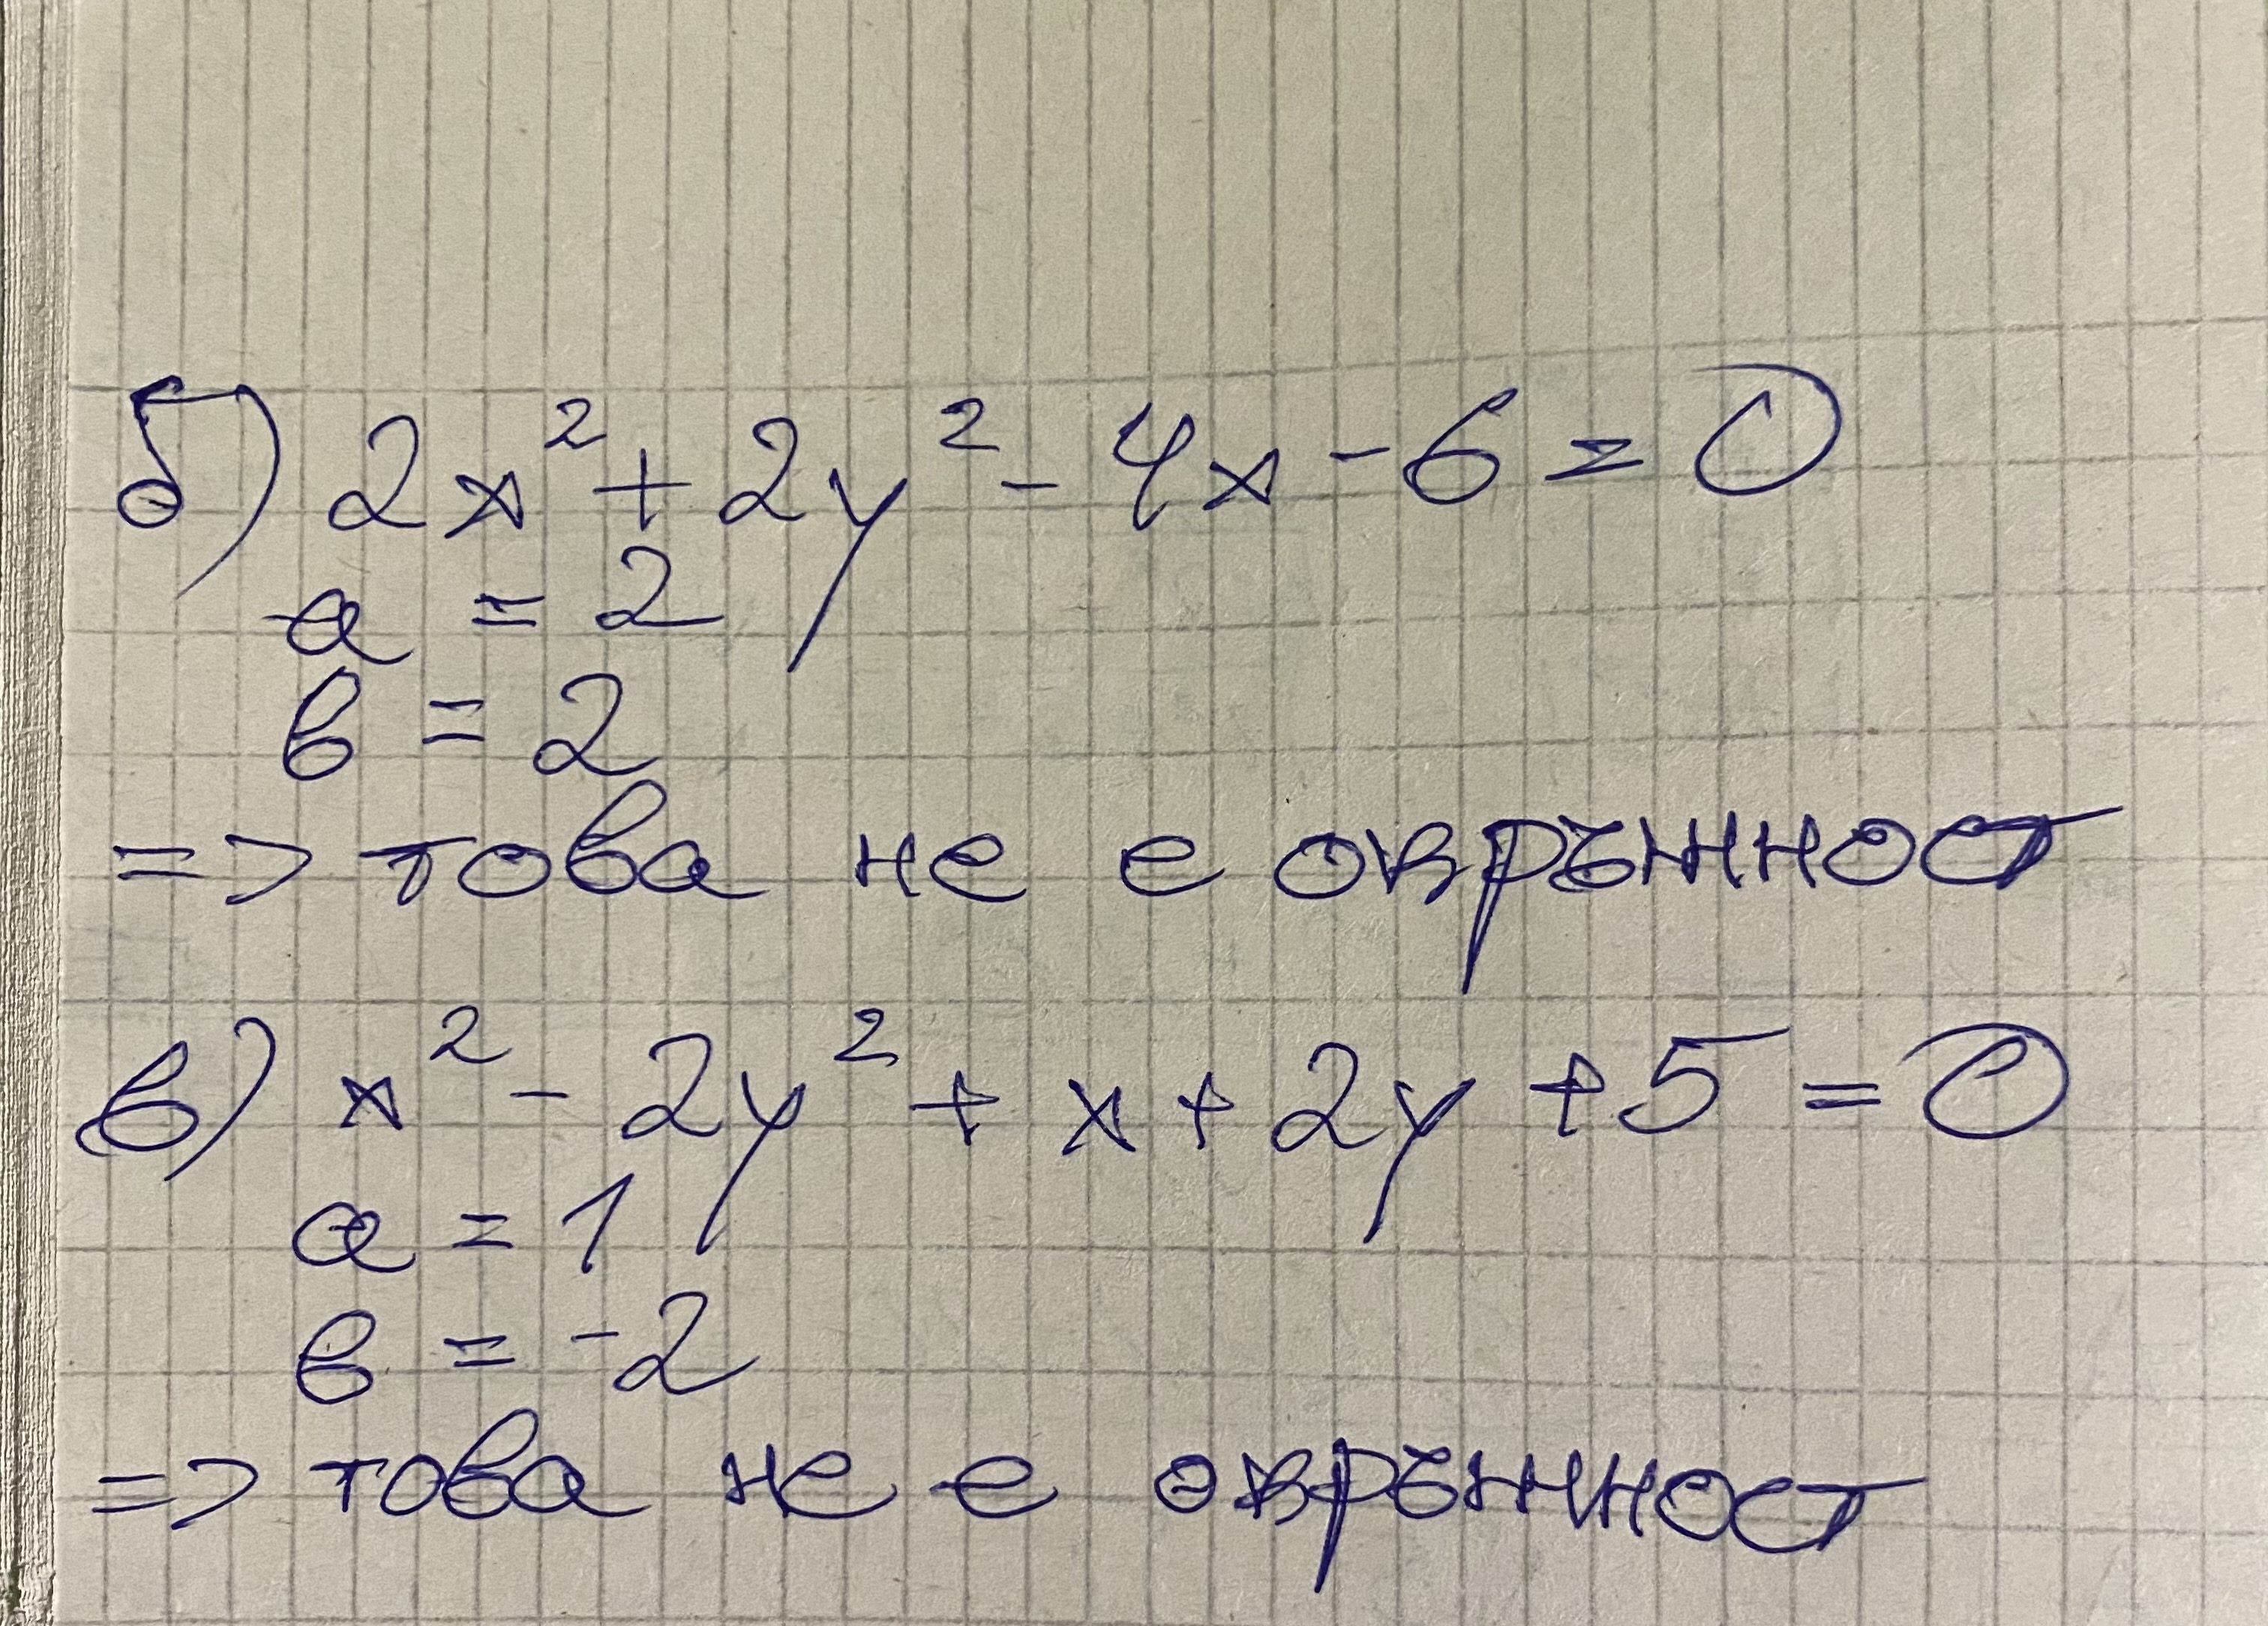 б) 2x² + 2y² - 4x - 6 = 0
a = 2
в = 2
=> това не е окръжност
в) x² - 2y² + x + 2y + 5 = 0
a = 1
в = -2
=> това не е окръжност